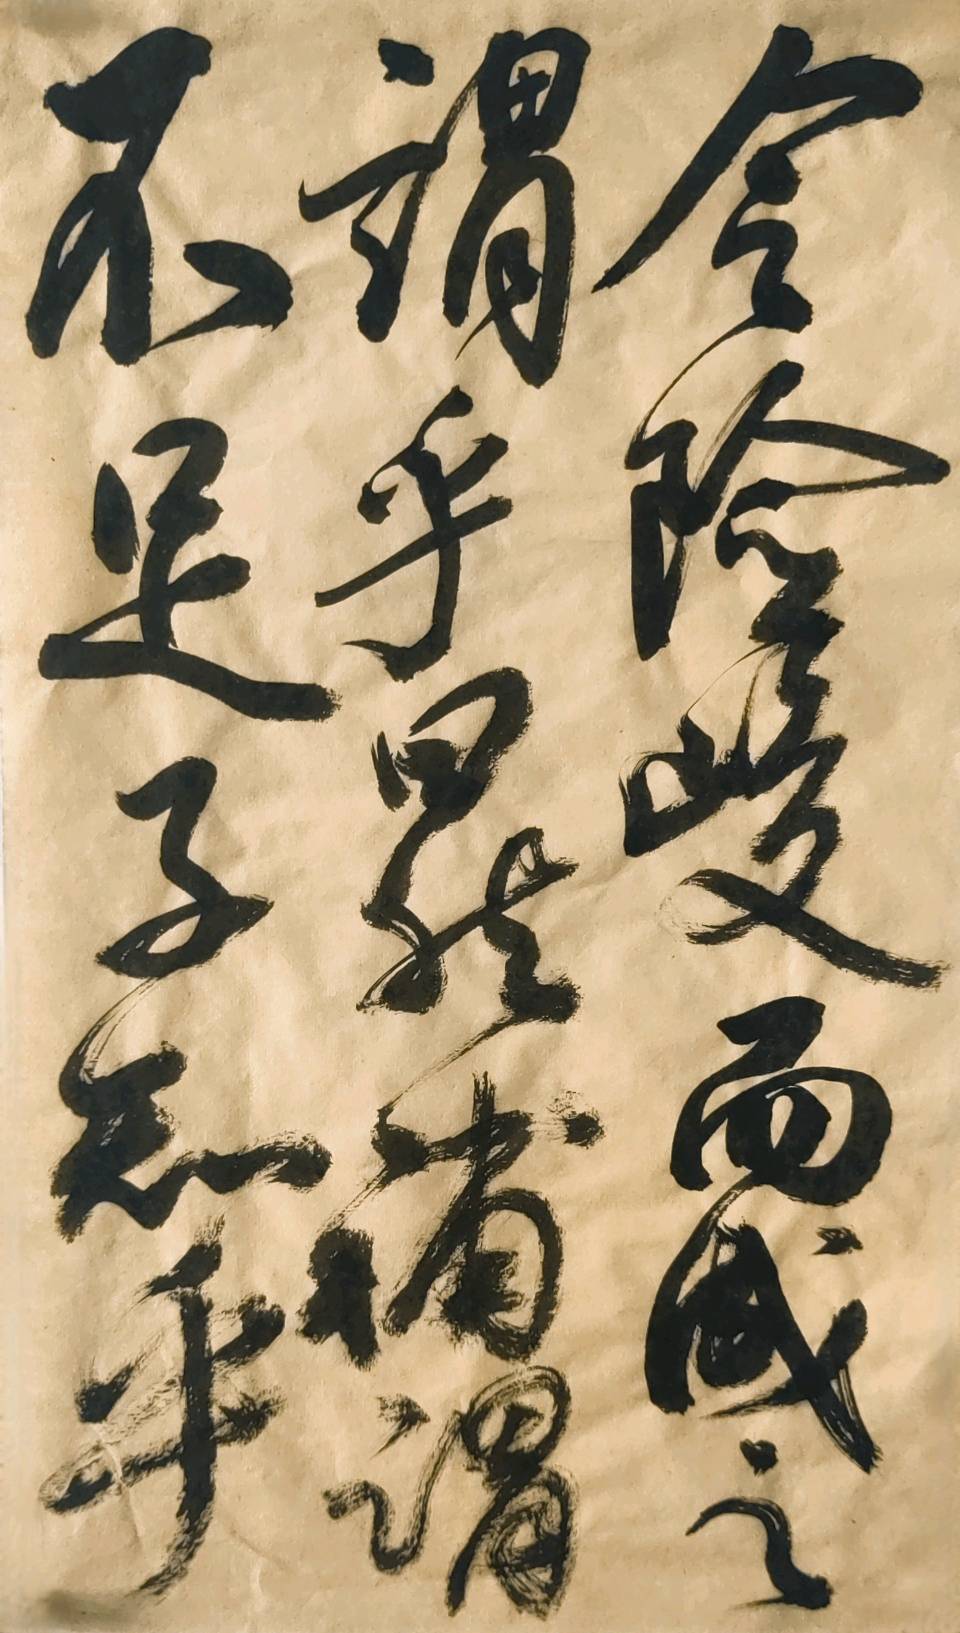 今險峻而咸之
謂乎罷補謂
不足子知乎